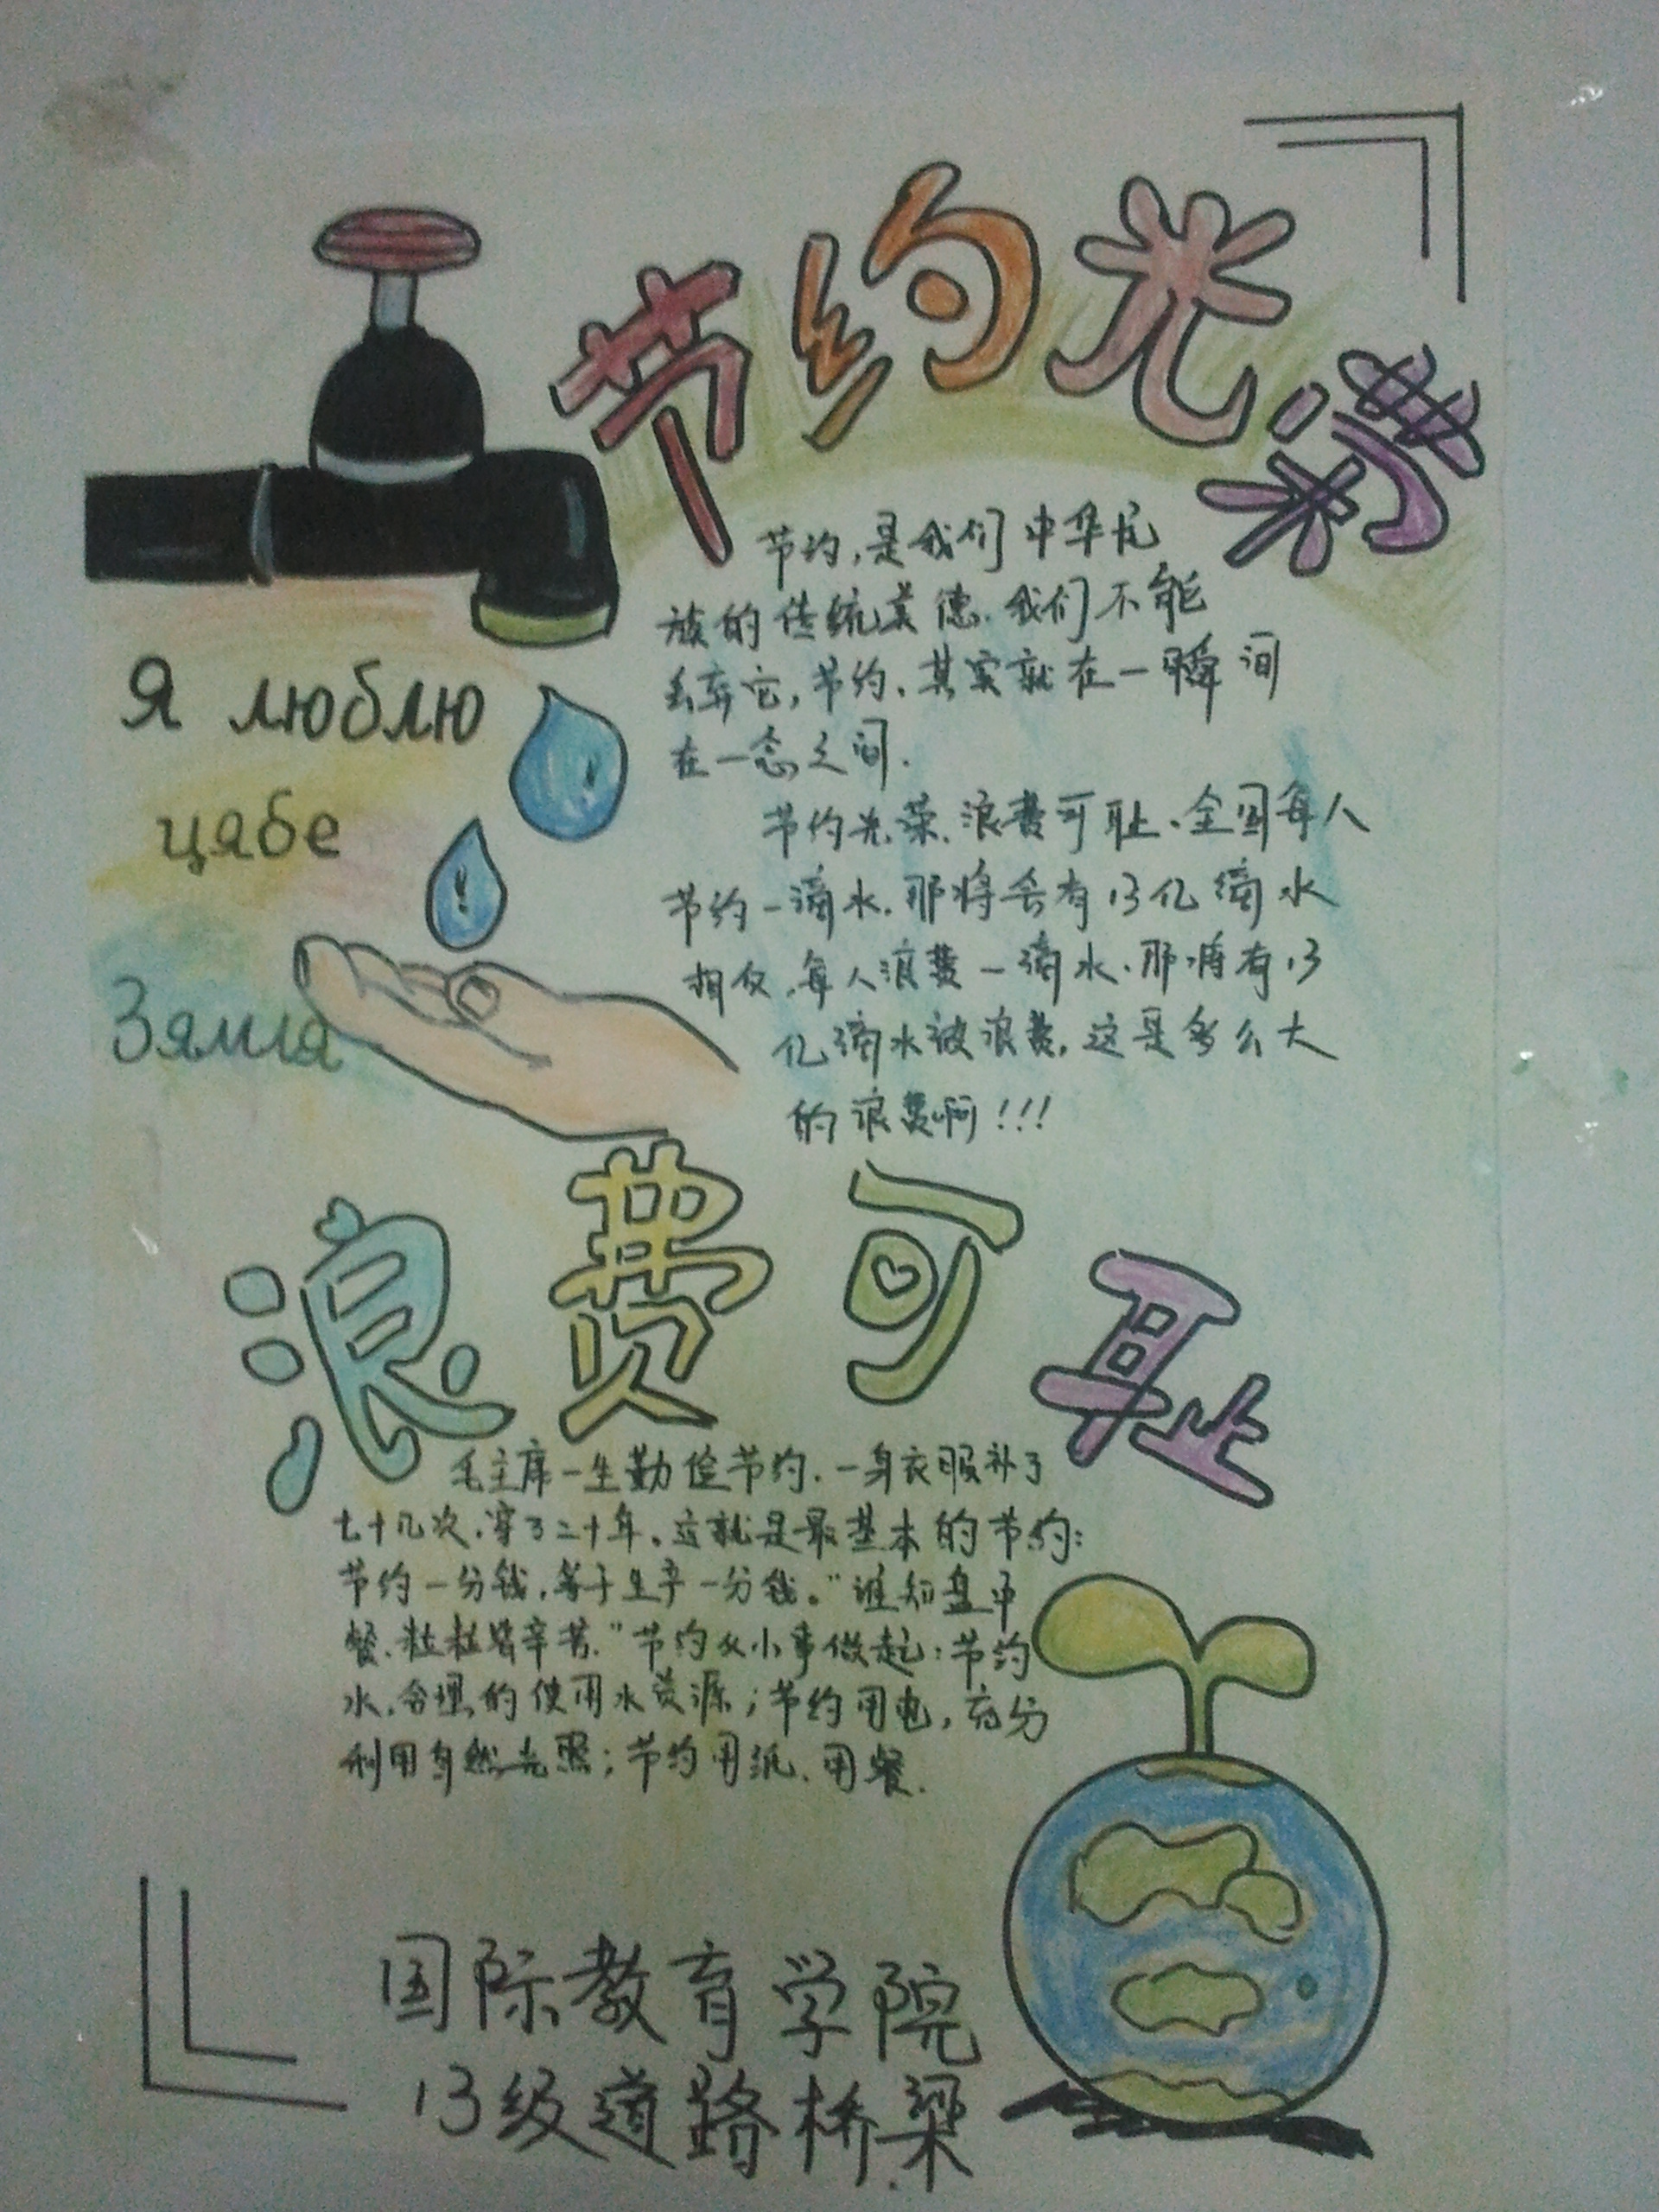 节约光荣
节约,是我们中华民
族的传统美德.我们不能
丢弃它,节约.其实就在一瞬间
在一念之间.
节约光荣.浪费可耻.全国每人
节约一滴水.那将会有13亿滴水
相反.每人浪费一滴水.那将有13
亿滴水被浪费.这是多么大
的浪费啊!!!
Я люблю
цябе
Зямля
浪费可耻
毛主席一生勤俭节约.一身衣服补了
七十几次.穿了二十年.这就是最基本的节约:
节约一分钱.等于生产一分钱。"谁知盘中
餐.粒粒皆辛苦."节约从小事做起:节约
水.合理的使用水资源;节约用电,充分
利用自然光照;节约用纸.用餐.
国际教育学院
13级道路桥梁